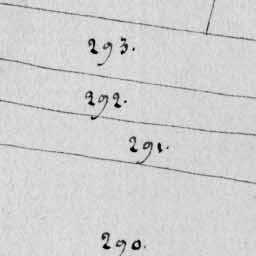 293.
292.
291.
290.